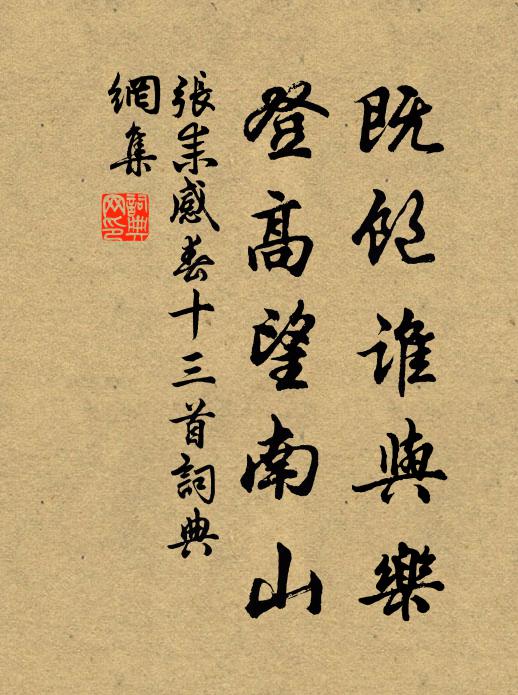 既飽誰與樂
登高望南山
張耒感春十三首詞典
網集
詞典网印